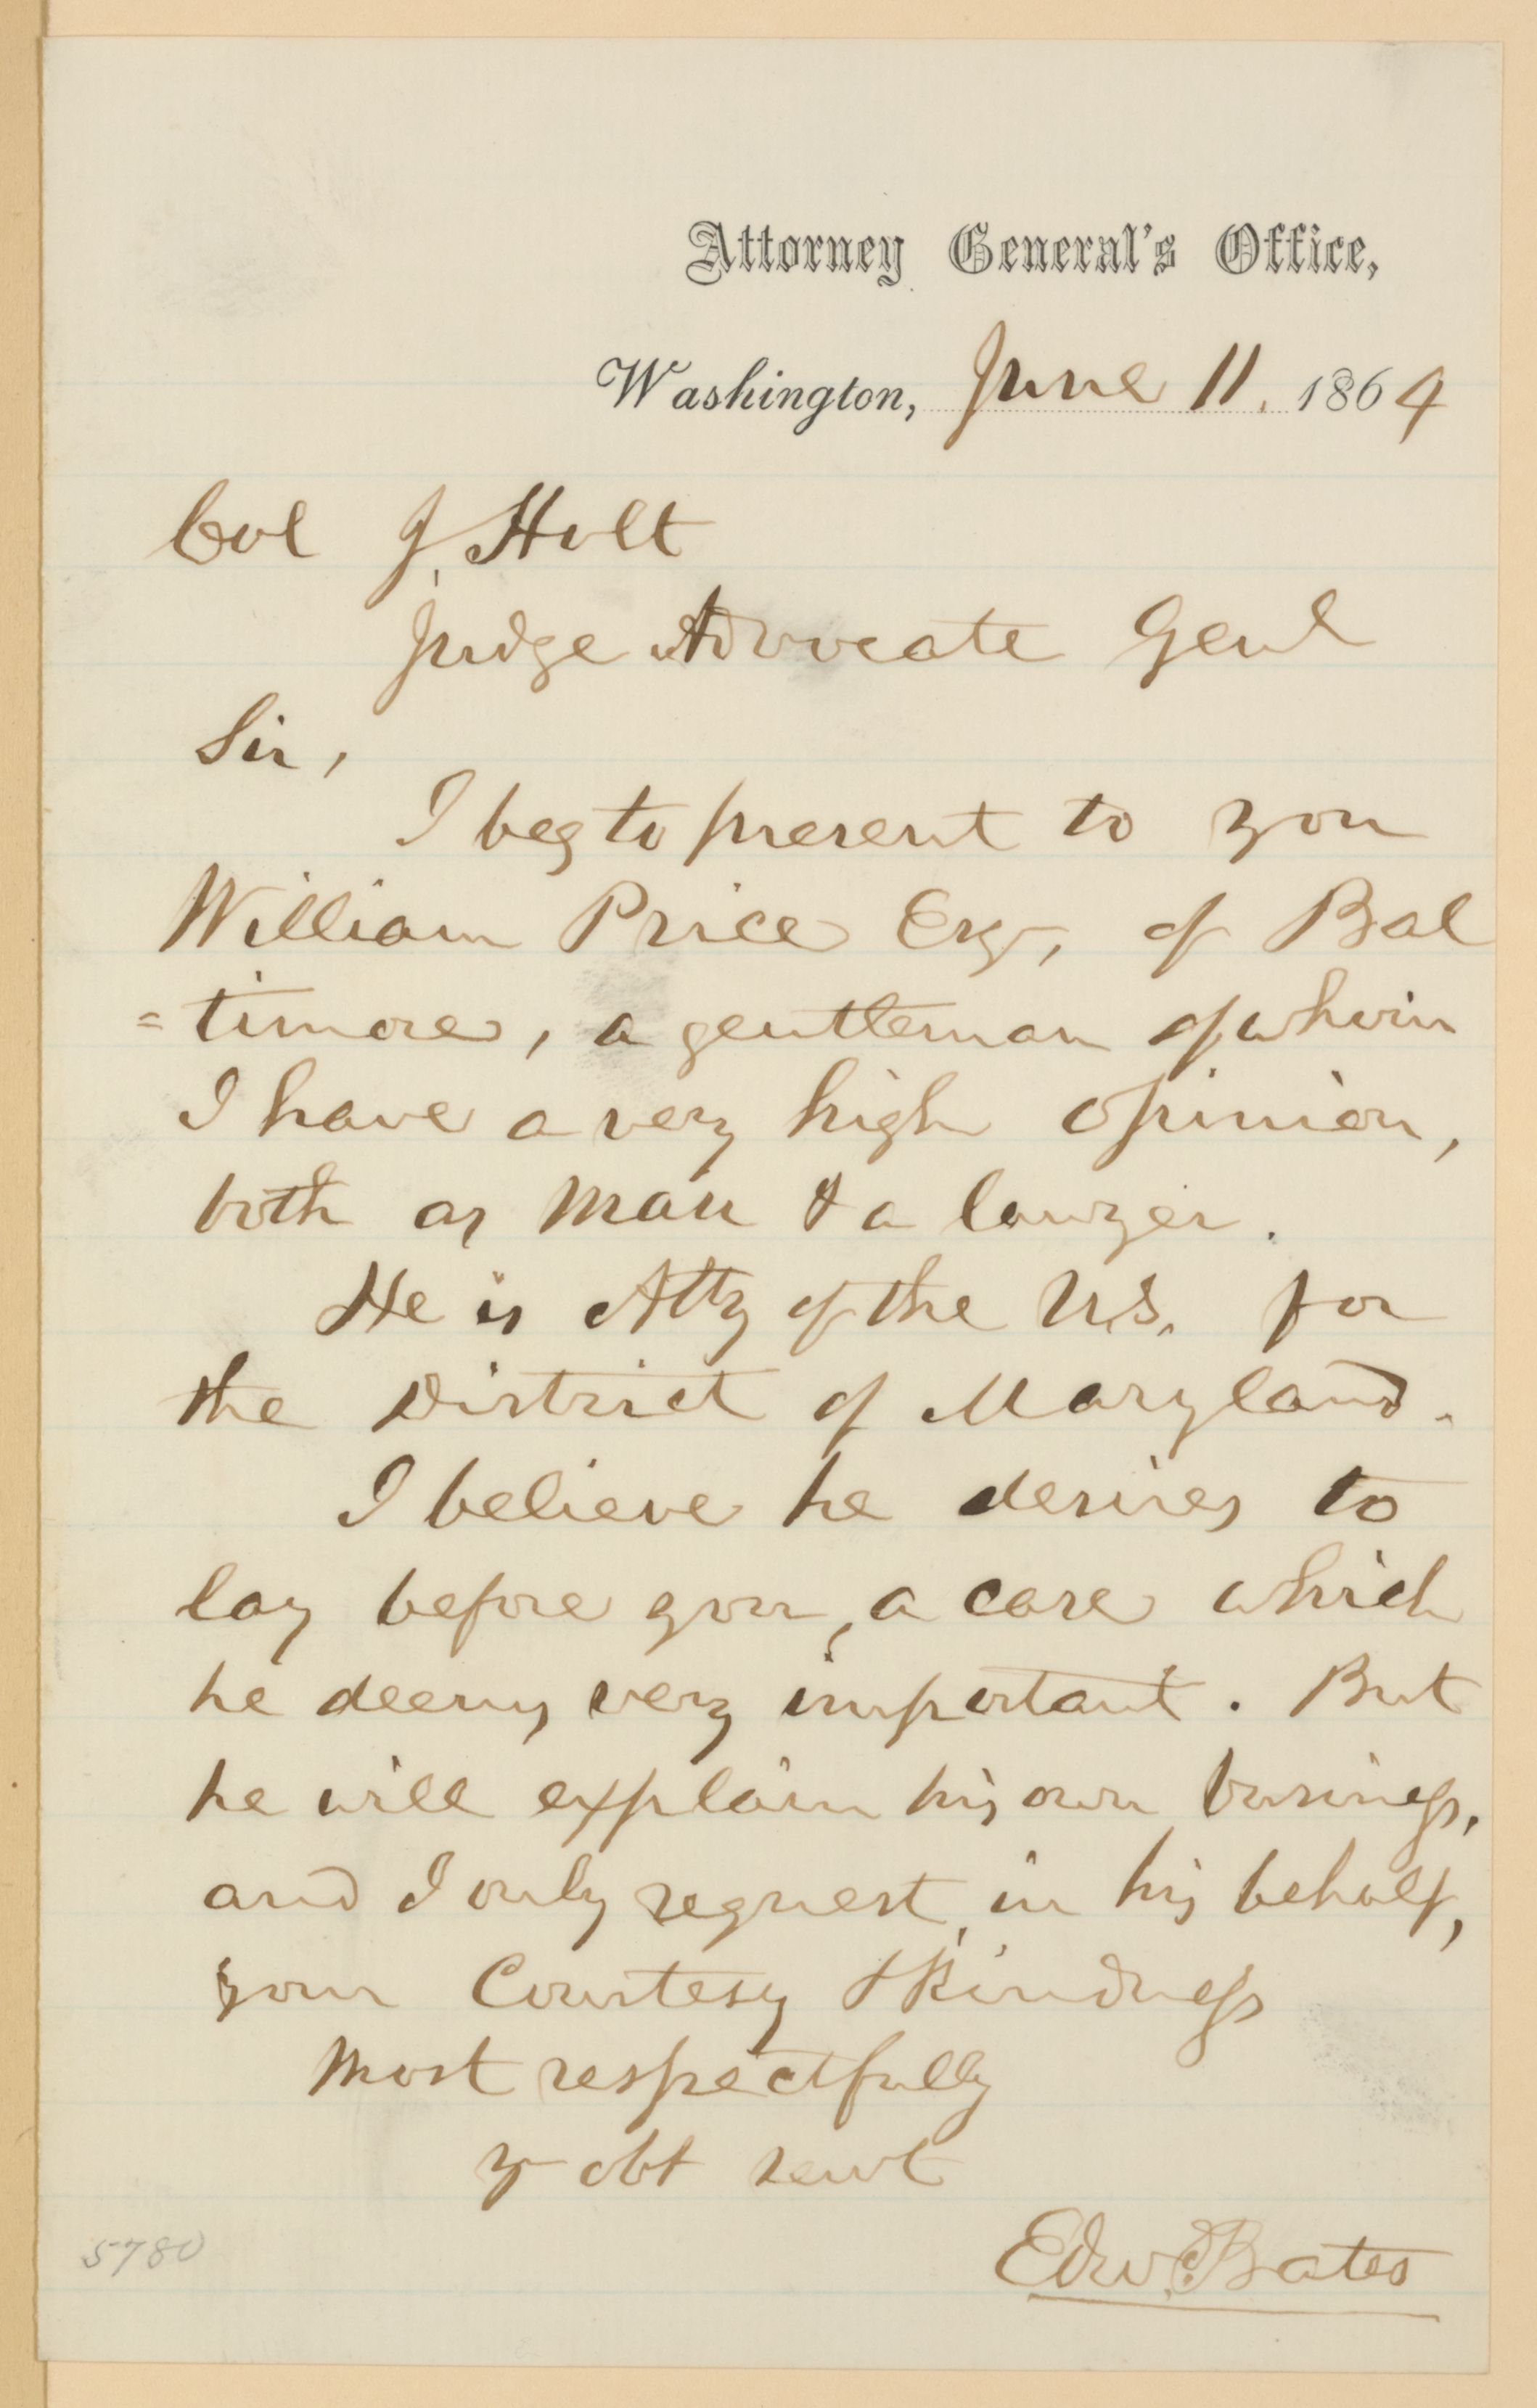 Attorney General's Office,
Washington, June 11. 1864
Col J. Holt
Judge Advocate Genl
Sir,
I beg to present to you
William Price Esq, of Bal
=timore, a gentleman of whom
I have a very high opinion,
both as man & a lawyer.
He is Atty of the U.S. for
the District of Maryland.
I believe he desires to
lay before you, a case which
he deems very important. But
he will explain his own business,
and I only request, in his behalf,
your Courtesy & Kindness
Most respectfully
yr obt servt
Edw. Bates
5780